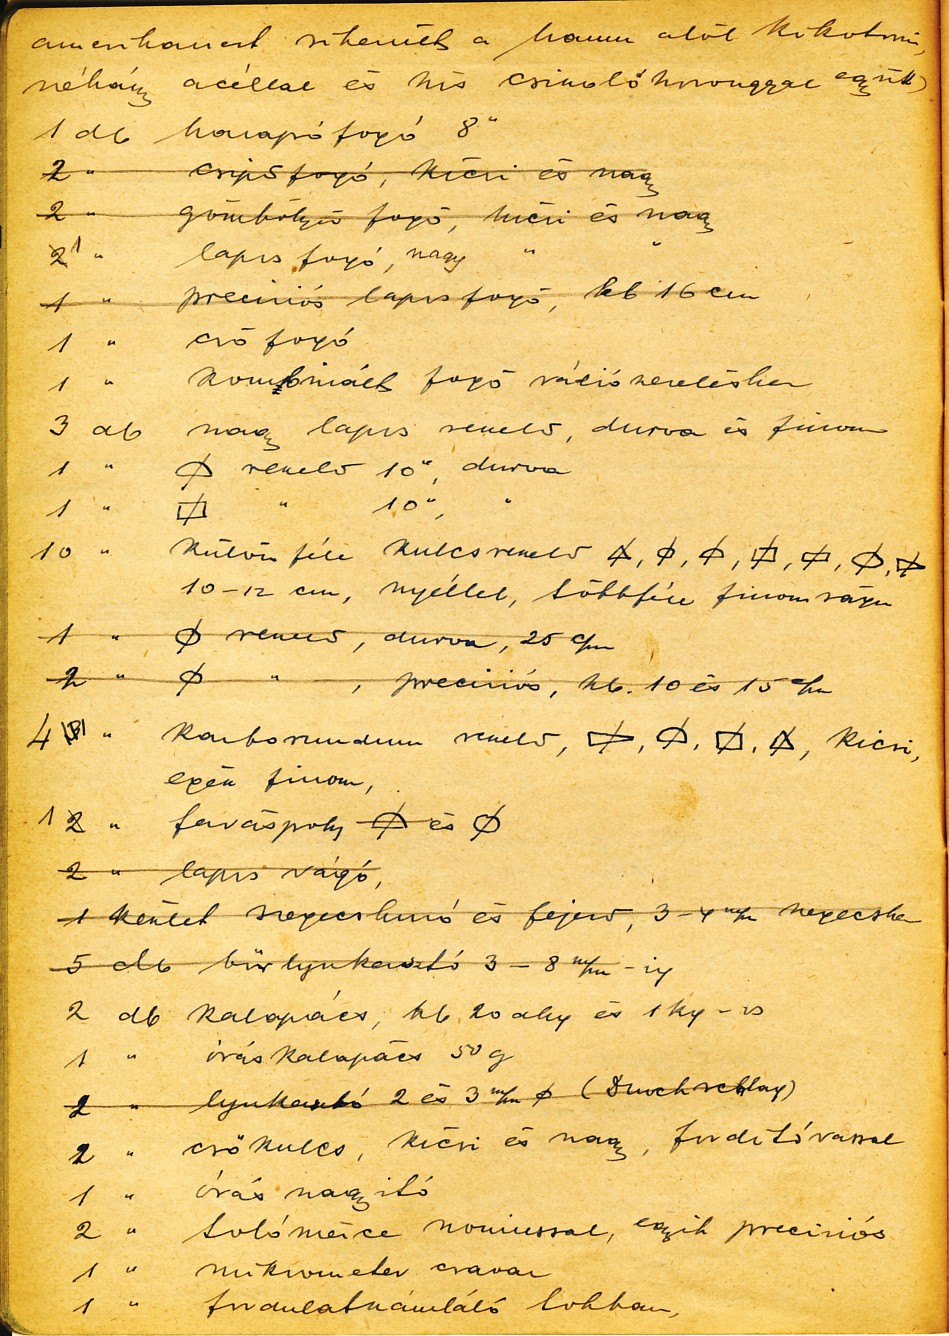 amerikanert sikerült a hamu alól kikotorni,
néhány acéllal és kis csinálóhoronggal együtt)
1 db harapófogó 8"
2 " csípőfogó, kicsi és nagy
2 " gömbölyű fogó, kicsi és nagy
2 1 " lapos fogó, nagy " "
1 " preciziós lapos fogó, kb 16 cm
1 " cső fogó
1 " kombinált fogó rádiószereléshez
3 db nagy lapos reszelő, durva és finom
1 " ⌀ reszelő 10", durva
1 " " 10", "
10 " különféle kulcsreszelő
10-12 cm, nyéllel, többféle finomságu
1 " ⌀ reszelő, durva, 25 c/m
2 " ⌀ " , preciziós, kb. 10 és 15 c/m
4 " Karborundum reszelő, kicsi,
egén finom,
1 2 " faráspoly ⌀ és ⌀
2 " lapos vágó,
1 készlet szegecshuzó és fejező, 3-4 m/m szegecshez
5 db bőrlyukasztó 3 - 8 m/m - ig
2 db kalapács, kb 20 dkg és 1 kg - os
1 " óráskalapács 50 g
2 " lyukasztó 2 és 3 m/m ⌀ (Durchschlag)
2 " csőkulcs, kicsi és nagy, forditóvassal
1 " órás nagyitó
2 " tolómérce noniussal, egyik preciziós
1 " mikrometer csavar
1 " fordulatszámláló tokban,